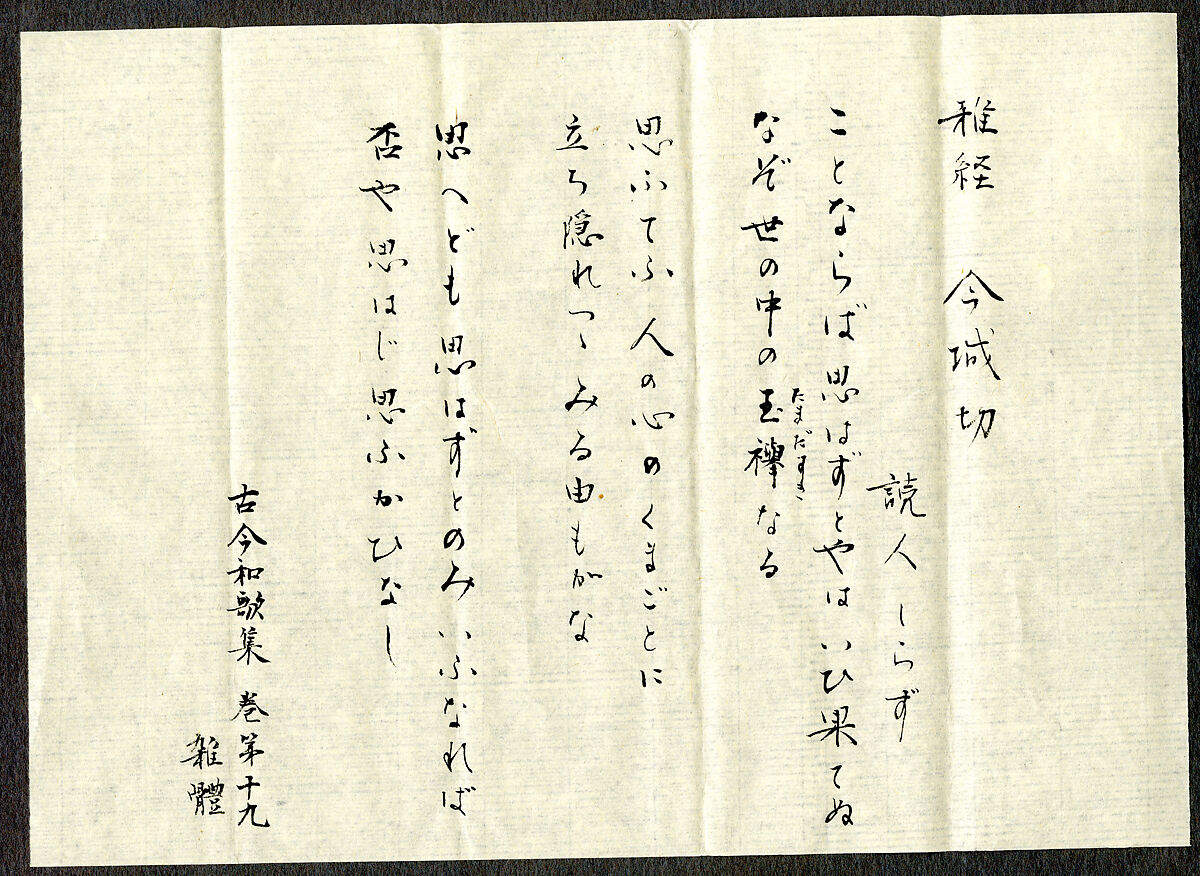 雅経 今城切
読人しらず
ことならば思はずとやはいひ果てぬ
なぞ世の中の玉襷なる
たまだすき
思ふてふ人の心のくまごとに
立ち隠れつゝみる由もがな
思へども思はずとのみいふなれば
否や思はじ思ふかひなし
古今和歌集 巻第十九
雑體